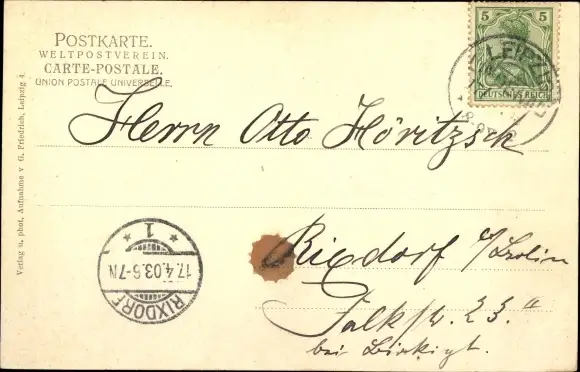 POSTKARTE.
WELTPOSTVEREIN.
CARTE-POSTALE.
UNION POSTALE UNIVERSELLE.
5 5
DEUTSCHES REICH
LEIPZIG
Herrn Otto Höritzsch
Rixdorf b/Berlin
Falkstr. 23.II
bei Birkigt.
RIXDORF
17.4.03.6-7N
* 1 *
Verlag u. phot. Aufnahme v. G. Friedrich, Leipzig 4.